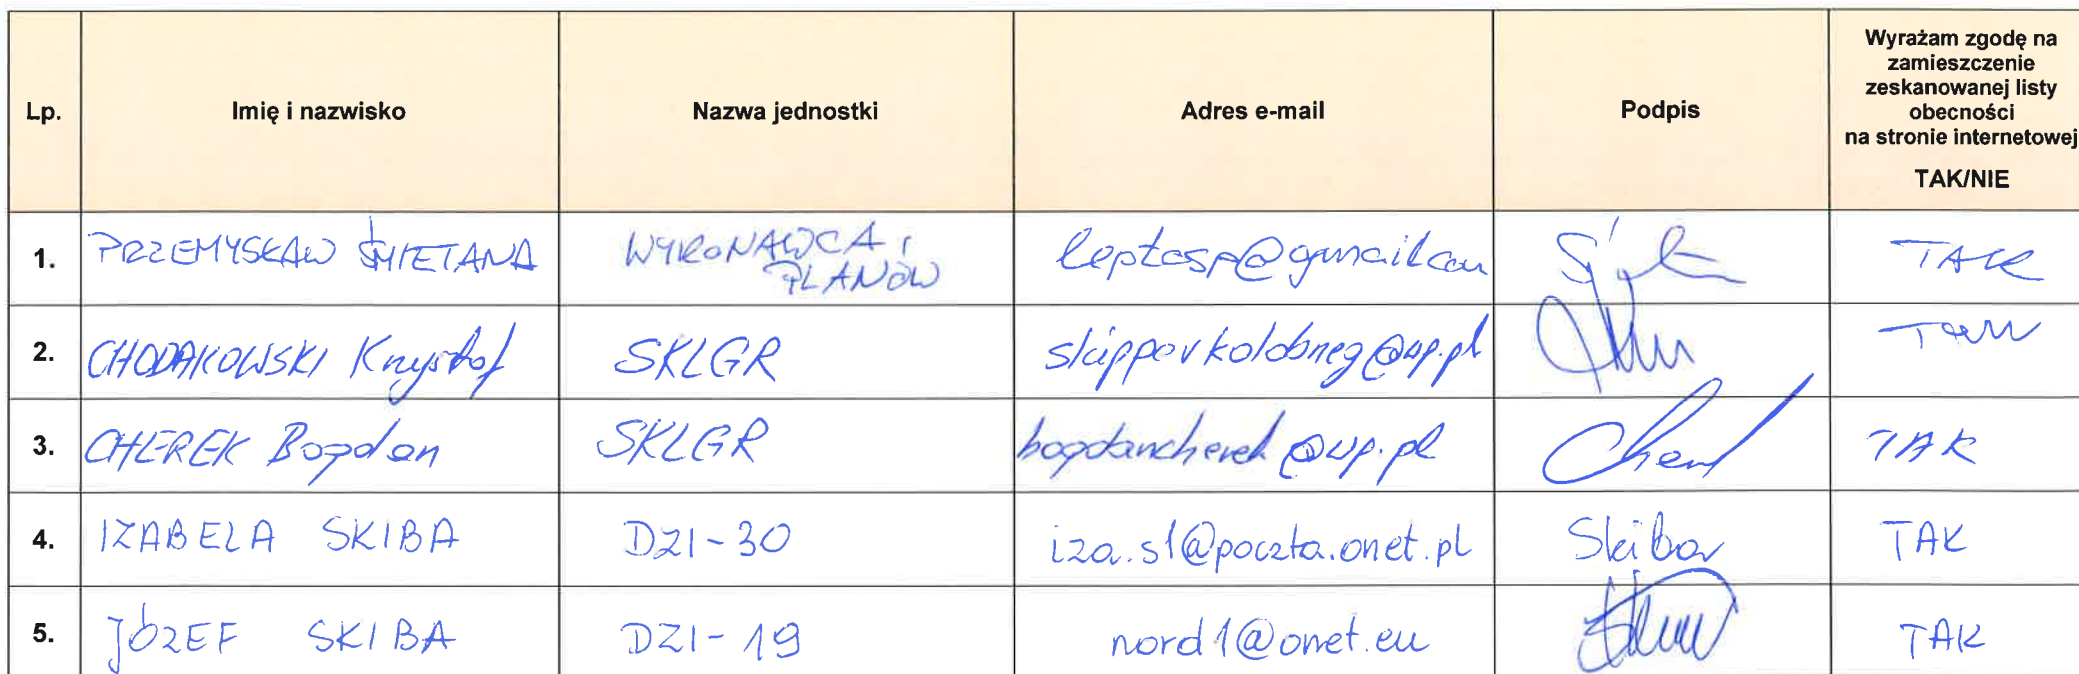 Lp. Imię i nazwisko Nazwa jednostki Adres e-mail Podpis Wyrażam zgodę na
zamieszczenie
zeskanowanej listy
obecności
na stronie internetowej
TAK/NIE
1. PRZEMYSŁAW ŚMIETANA WYKONAWCA
PLANÓW leptosp@gmail.com TAK
2. CHODAKOWSKI Krzysztof SKLGR skipperkolobrzeg@wp.pl TAK
3. CHEREK Bogdan SKLGR bogdancherek@wp.pl TAK
4. IZABELA SKIBA DZI-30 iza.s1@poczta.onet.pl Skiba TAK
5. JÓZEF SKIBA DZI-19 nord1@onet.eu TAK